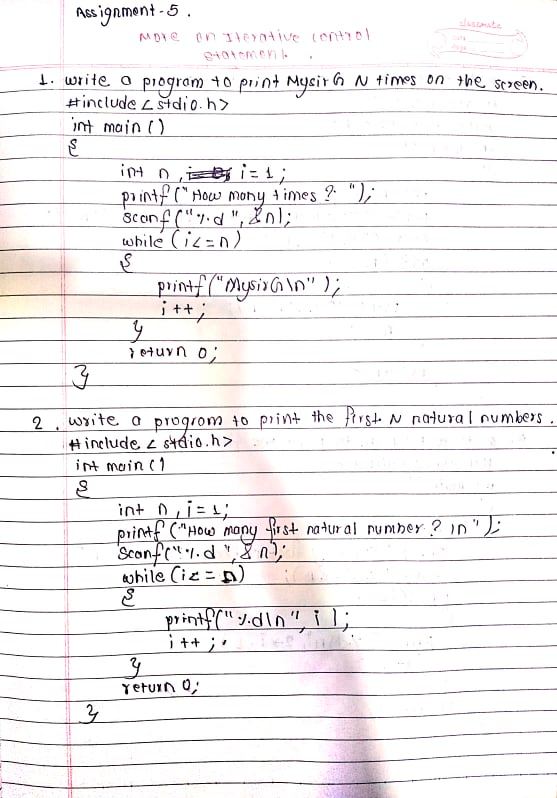 Assignment-5.
classmate
Date
Page
More on Iterative Control
Statement.
1. write a program to print MysirG N times on the screen.
#include <stdio.h>
int main ()
{
int n, i=1;
printf ("How many times ? ");
scanf ("%d", &n);
while (i<=n)
{
printf ("MysirG\n");
i++;
}
return 0;
}
2. write a program to print the first N natural numbers.
#include <stdio.h>
int main ()
{
int n, i=1;
printf ("How many first natural number? \n");
scanf ("%d", &n);
while (i<=n)
{
printf("%d\n", i);
i++;
}
return 0;
}